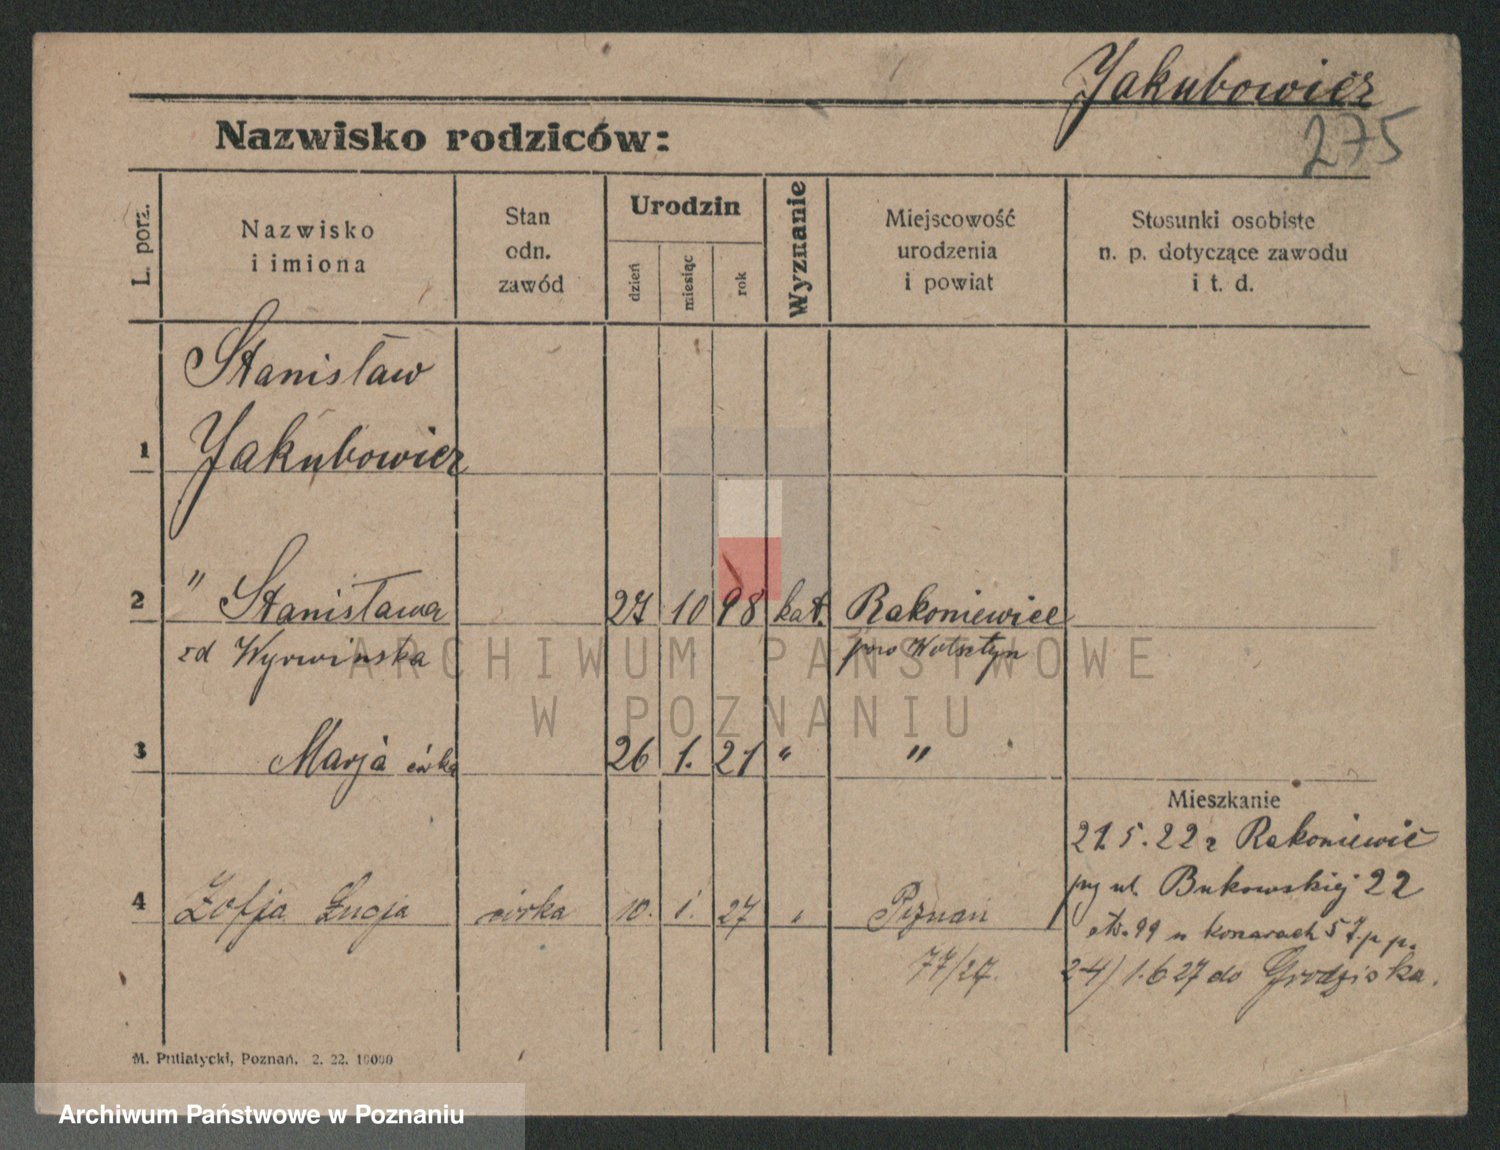 Jakubowicz
275
Nazwisko rodziców:
L. porz.
Nazwisko
i imiona
Stan
odn.
zawód
Urodzin
dzień
miesiąc
rok
Wyznanie
Miejscowość
urodzenia
i powiat
Stosunki osobiste
n. p. dotyczące zawodu
i t. d.
Stanisław
1 Jakubowicz
2 " Stanisława 27 10 98 kat. Rakoniewice
zd Wyrwińska pow Wolsztyn
3 Marja córka 26 1. 21 " "
Mieszkanie
21.5.22 z Rakoniewic
ul. Bukowskiej 22
4 Zofja Łucja córka 10. 1. 27 " Poznań
w koszarach 57 p p.
77/27. 24/1.6 27 do Grodziska.
M. Putiatycki, Poznań. 2. 22. 10000
ARCHIWUM PAŃSTWOWE
W POZNANIU
Archiwum Państwowe w Poznaniu